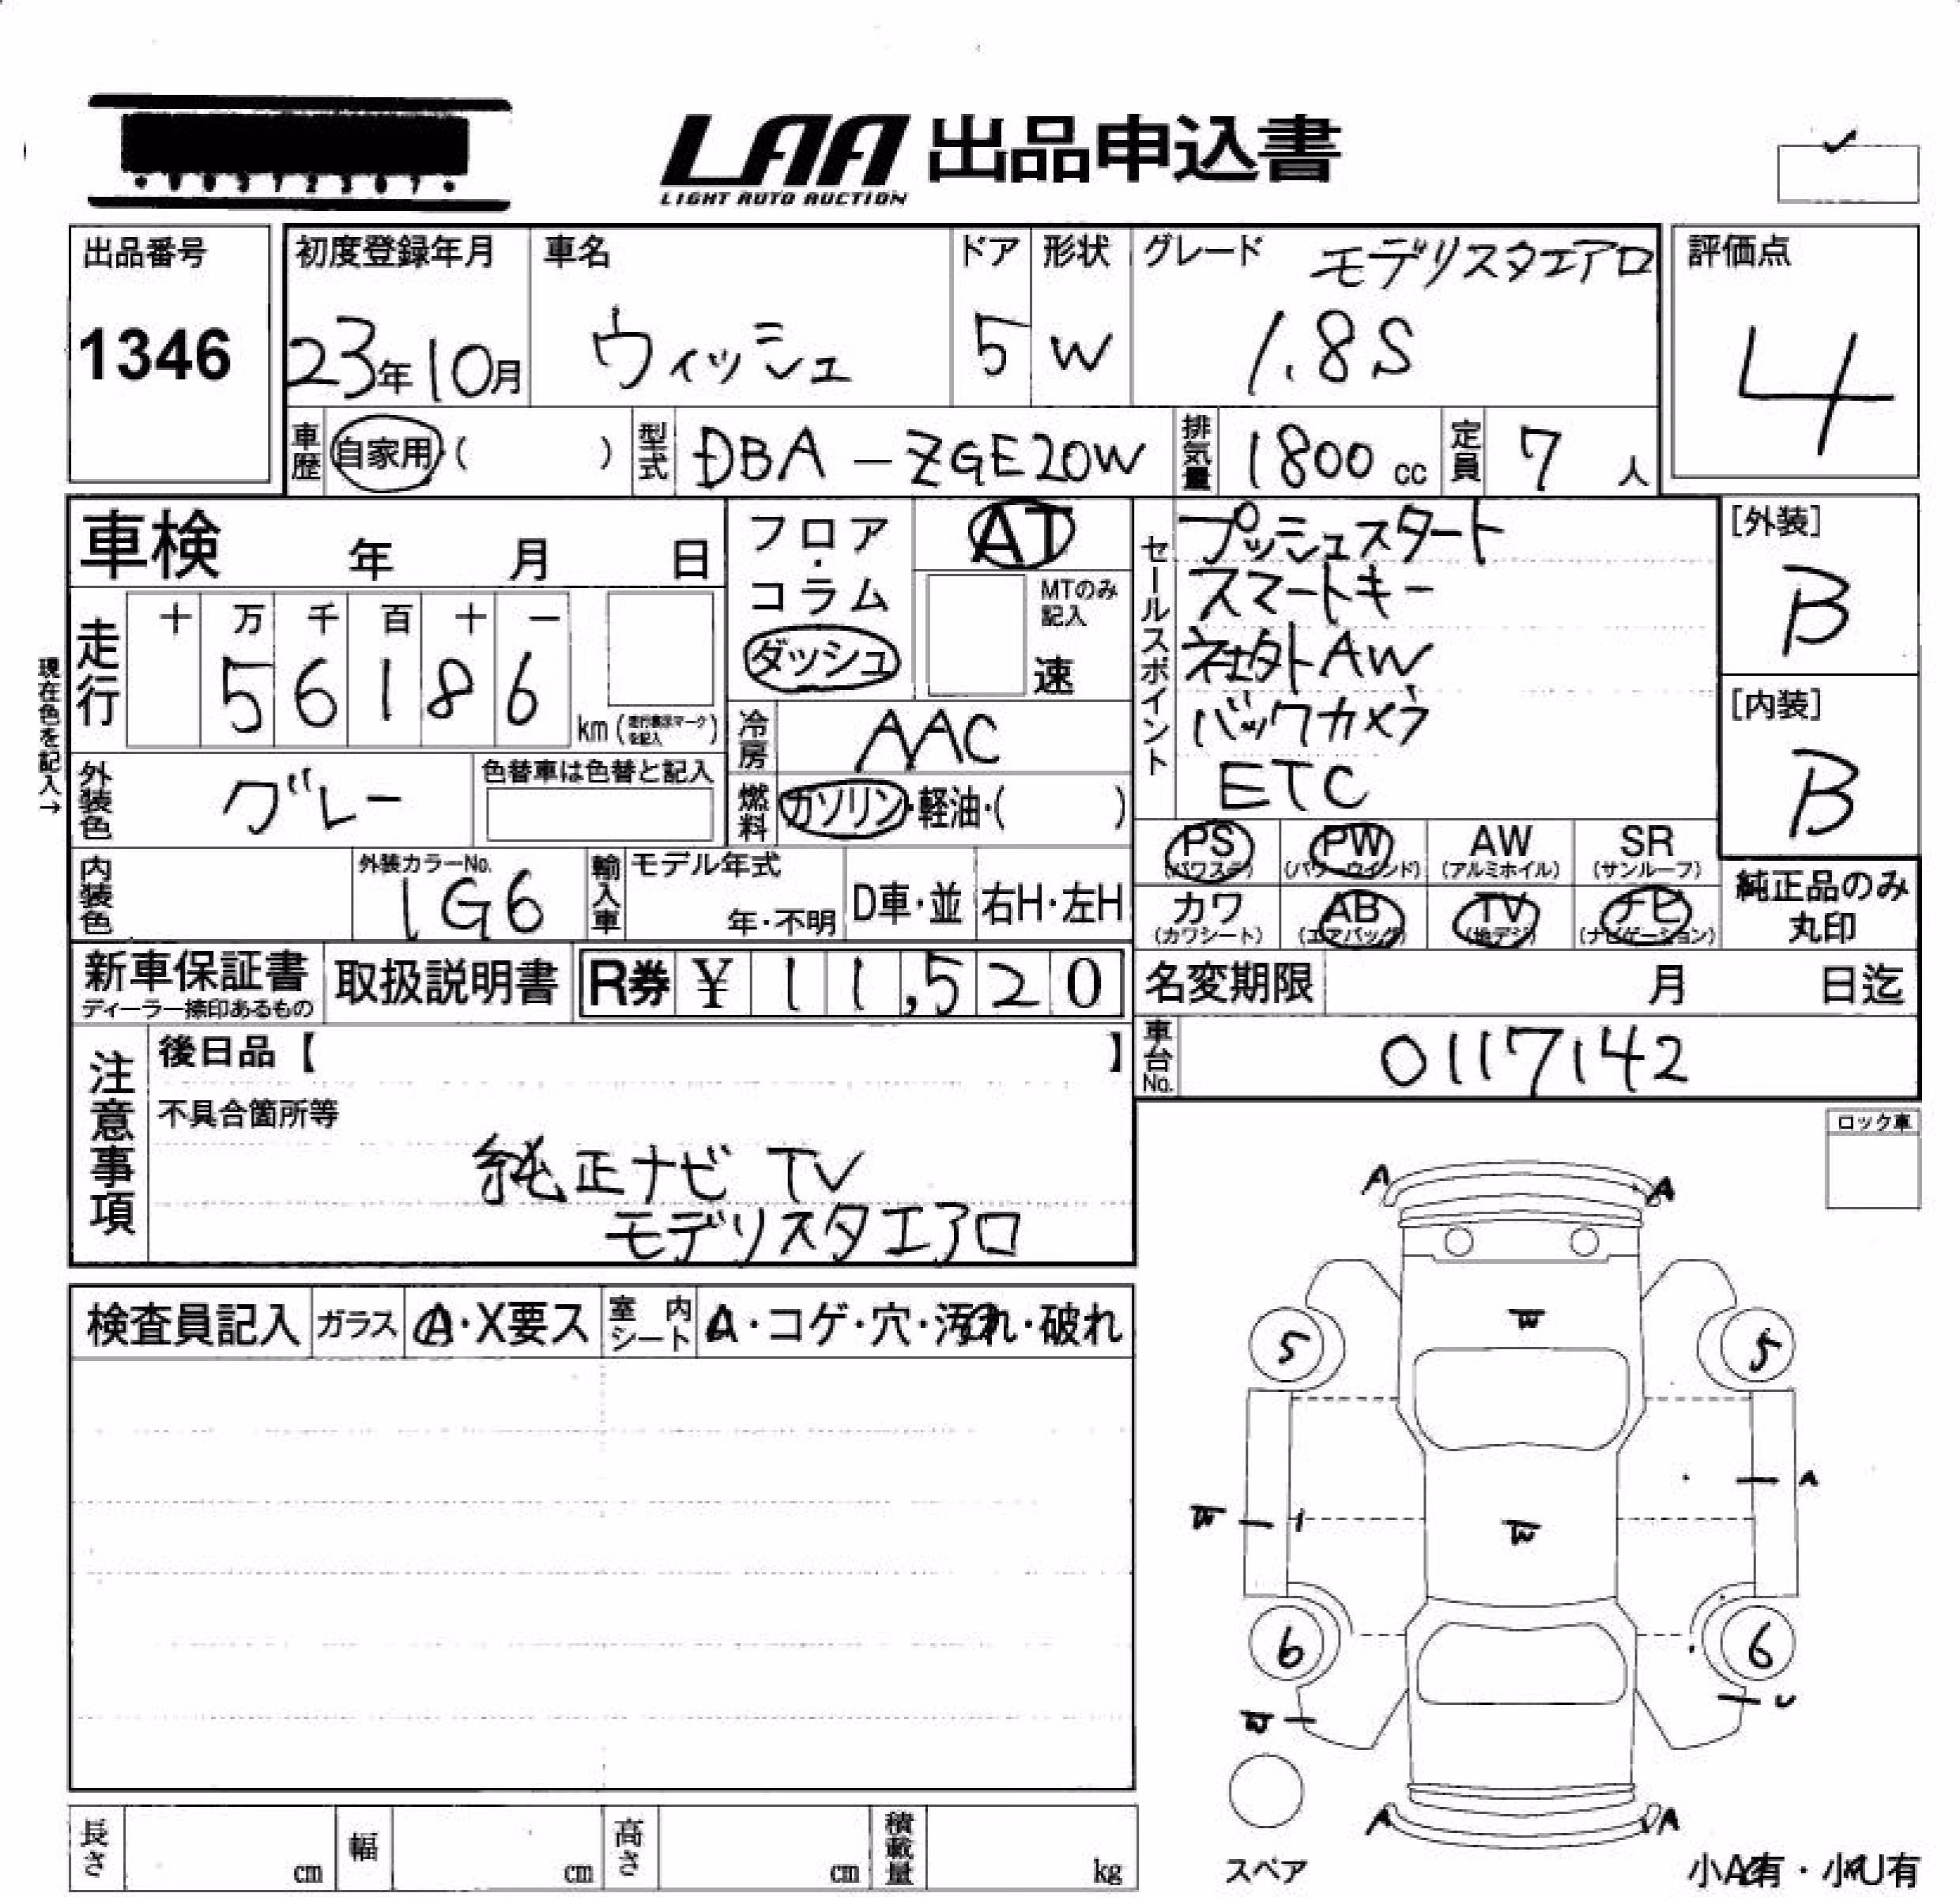 LAA 出品申込書
LIGHT AUTO AUCTION
出品番号
1346
初度登録年月
23年10月
車名
ウィッシュ
ドア
5
形状
W
グレード モデリスタエアロ
1.8S
評価点
4
車歴 自家用 ( )
型式 DBA-ZGE20W
排気量 1800 cc
定員 7 人
車検 年 月 日
現在色を記入→
走行
十 万 千 百 十 一
5 6 1 8 6
km (走行表示マークを記入)
フロア・コラム
ダッシュ
AT
MTのみ記入
速
冷房 AAC
燃料 ガソリン・軽油・( )
外装色 グレー
色替車は色替と記入
内装色
外装カラーNo.
1G6
輸入車
モデル年式
年・不明
D車・並
右H・左H
セールスポイント
プッシュスタート
スマートキー
社外AW
バックカメラ
ETC
[外装]
B
[内装]
B
PS PW AW SR
(パワステ) (パワーウインド) (アルミホイル) (サンルーフ)
カワ AB TV ナビ
(カワシート) (エアバッグ) (地デジ) (ナビゲーション)
純正品のみ
丸印
新車保証書
ディーラー捺印あるもの
取扱説明書
R券 ¥ 11,520
名変期限 月 日迄
車台No. 0117142
注意事項
後日品【 】
不具合箇所等
純正ナビ TV
モデリスタエアロ
ロック車
検査員記入
ガラス A・X要ス
室内シート A・コゲ・穴・汚れ・破れ
A A
W
5 5
W A
W
6 6
W U
A A
スペア
小A有・小U有
長さ cm
幅 cm
高さ cm
積載量 kg